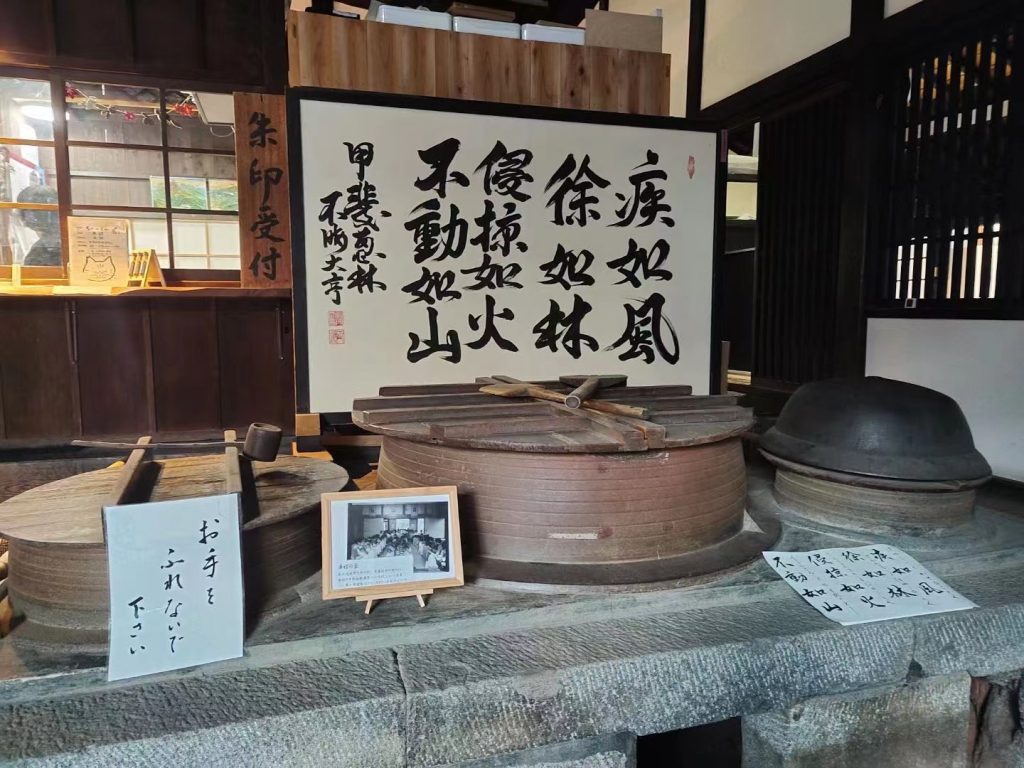 朱印受付
疾如風
徐如林
侵掠如火
不動如山
甲斐恵林
お手を
ふれないで
下さい
疾如風
徐如林
侵掠如火
不動如山